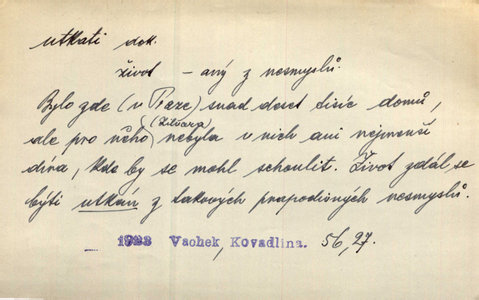 utkati dok.
život – aný z nesmyslů.
Bylo zde (v Praze) snad deset tisíc domů,
ale pro něho (Zitvara) nebyla v nich ani nejmenší
díra, kdo by se mohl schoulit. Život zdál se
býti utkán z takových prapodivných nesmyslů.
1923 Vachek, Kovadlina. 56, 27.